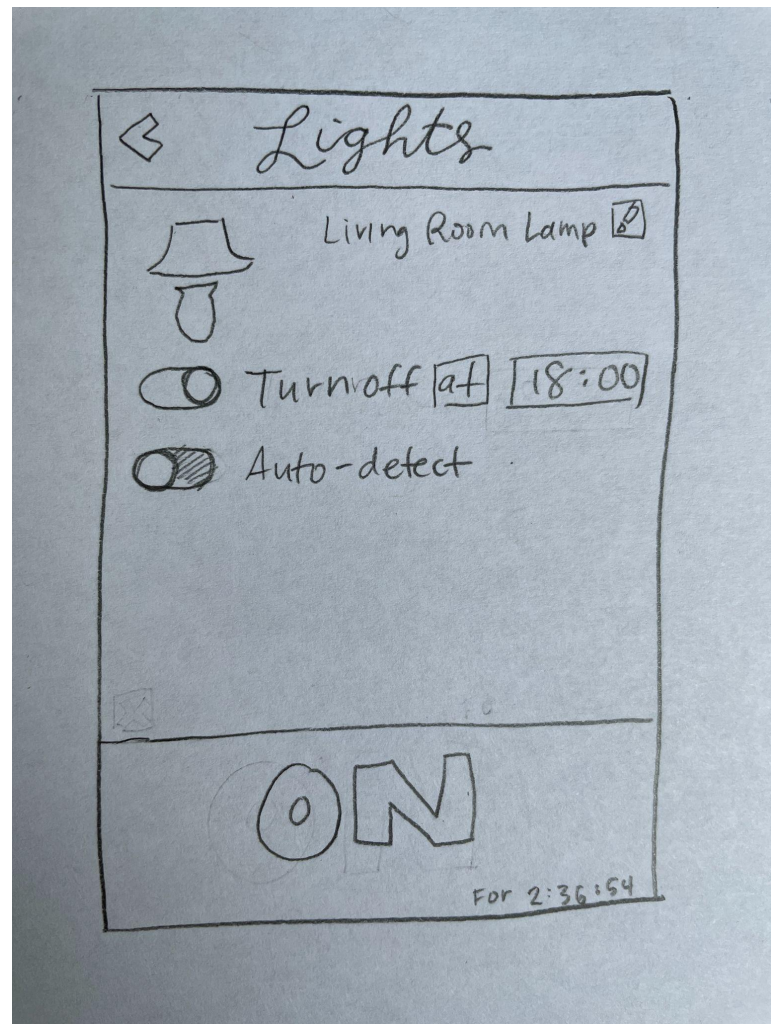 Lights
Living Room Lamp
Turn off at 18:00
Auto-detect
ON
For 2:36:54